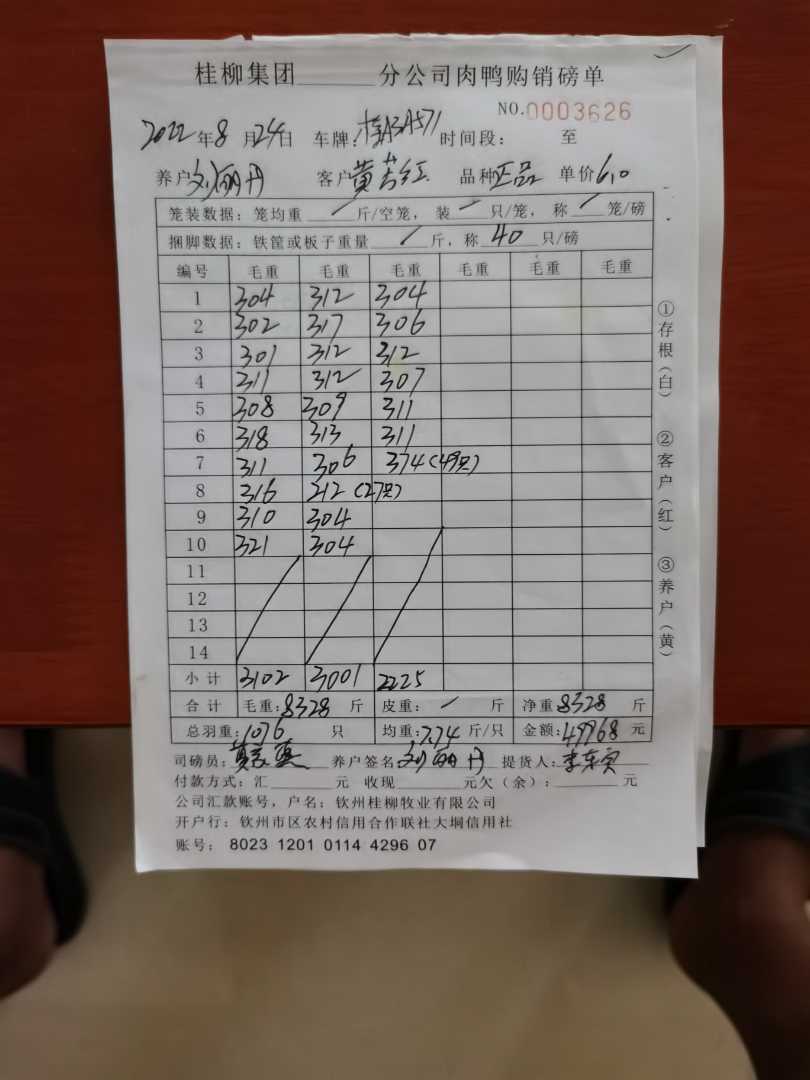 桂柳集团______分公司肉鸭购销磅单
NO.0003626
2022年8月24日 车牌: 时间段: 至
养户刘丽丹 客户黄 红 品种正品 单价6.0
笼装数据: 笼均重 / 斤/空笼, 装 / 只/笼, 称 / 笼/磅
捆脚数据: 铁筐或板子重量 / 斤, 称 40 只/磅
编号 毛重 毛重 毛重 毛重 毛重 毛重
1 304 312 304
2 302 317 306
3 301 312 312
4 311 312 307
5 308 309 311
6 318 313 311
7 311 306 374(49只)
8 316 212(27只)
9 310 304
10 321 304
11
12
13
14
小计 3102 3001 2225
合计 毛重:8328 斤 皮重: / 斤 净重8328 斤
总羽重:1076 只 均重:7.74 斤/只 金额:49968 元
司磅员: 养户签名刘丽丹 提货人:
付款方式: 汇______元 收现______元欠(余):______元
公司汇款账号, 户名: 钦州桂柳牧业有限公司
开户行: 钦州市区农村信用合作联社大垌信用社
账号: 8023 1201 0114 4296 07
①存根(白)
②客户(红)
③养户(黄)